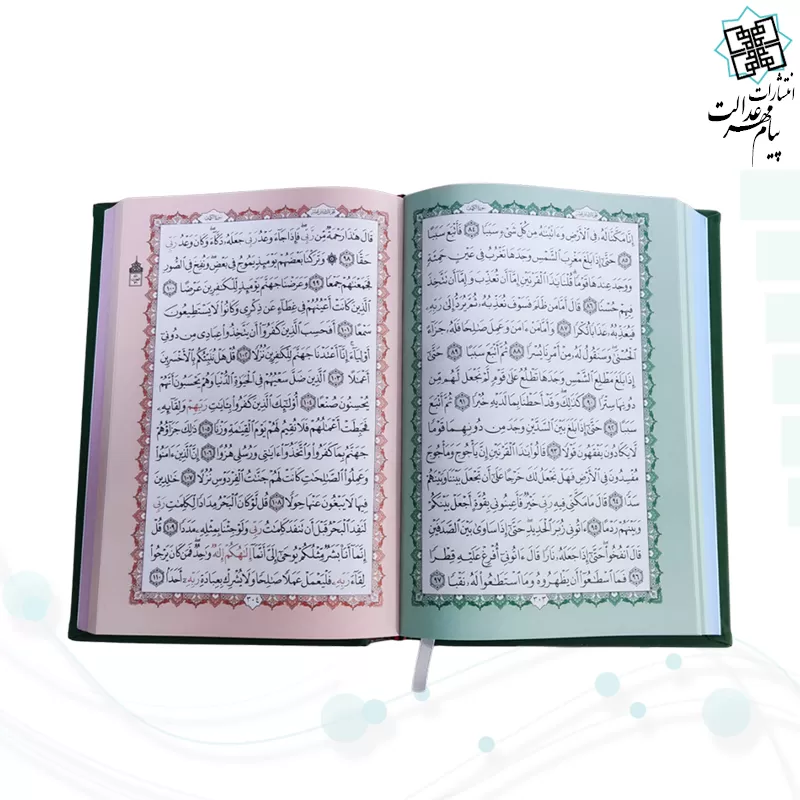 انتشارات
پیام مهر عدالت
إِنَّا مَكَّنَّا لَهُۥ فِى ٱلْأَرْضِ وَءَاتَيْنَٰهُ مِن كُلِّ شَىْءٍ سَبَبًا ٨٤ فَأَتْبَعَ سَبَبًا
٨٥ حَتَّىٰٓ إِذَا بَلَغَ مَغْرِبَ ٱلشَّمْسِ وَجَدَهَا تَغْرُبُ فِى عَيْنٍ حَمِئَةٍ
وَوَجَدَ عِندَهَا قَوْمًا قُلْنَا يَٰذَا ٱلْقَرْنَيْنِ إِمَّآ أَن تُعَذِّبَ وَإِمَّآ أَن تَتَّخِذَ
فِيهِمْ حُسْنًا ٨٦ قَالَ أَمَّا مَن ظَلَمَ فَسَوْفَ نُعَذِّبُهُۥ ثُمَّ يُرَدُّ إِلَىٰ رَبِّهِۦ
فَيُعَذِّبُهُۥ عَذَابًا نُّكْرًا ٨٧ وَأَمَّا مَنْ ءَامَنَ وَعَمِلَ صَٰلِحًا فَلَهُۥ جَزَآءً
ٱلْحُسْنَىٰ وَسَنَقُولُ لَهُۥ مِنْ أَمْرِنَا يُسْرًا ٨٨ ثُمَّ أَتْبَعَ سَبَبًا ٨٩ حَتَّىٰٓ
إِذَا بَلَغَ مَطْلِعَ ٱلشَّمْسِ وَجَدَهَا تَطْلُعُ عَلَىٰ قَوْمٍ لَّمْ نَجْعَل لَّهُم مِّن
دُونِهَا سِتْرًا ٩٠ كَذَٰلِكَ وَقَدْ أَحَطْنَا بِمَا لَدَيْهِ خُبْرًا ٩١ ثُمَّ أَتْبَعَ
سَبَبًا ٩٢ حَتَّىٰٓ إِذَا بَلَغَ بَيْنَ ٱلسَّدَّيْنِ وَجَدَ مِن دُونِهِمَا قَوْمًا
لَّا يَكَادُونَ يَفْقَهُونَ قَوْلًا ٩٣ قَالُوا۟ يَٰذَا ٱلْقَرْنَيْنِ إِنَّ يَأْجُوجَ وَمَأْجُوجَ
مُفْسِدُونَ فِى ٱلْأَرْضِ فَهَلْ نَجْعَلُ لَكَ خَرْجًا عَلَىٰٓ أَن تَجْعَلَ بَيْنَنَا وَبَيْنَهُمْ
سَدًّا ٩٤ قَالَ مَا مَكَّنِّى فِيهِ رَبِّى خَيْرٌ فَأَعِينُونِى بِقُوَّةٍ أَجْعَلْ بَيْنَكُمْ
وَبَيْنَهُمْ رَدْمًا ٩٥ ءَاتُونِى زُبَرَ ٱلْحَدِيدِ حَتَّىٰٓ إِذَا سَاوَىٰ بَيْنَ ٱلصَّدَفَيْنِ
قَالَ ٱنفُخُوا۟ حَتَّىٰٓ إِذَا جَعَلَهُۥ نَارًا قَالَ ءَاتُونِىٓ أُفْرِغْ عَلَيْهِ قِطْرًا
٩٦ فَمَا ٱسْطَٰعُوٓا۟ أَن يَظْهَرُوهُ وَمَا ٱسْتَطَٰعُوا۟ لَهُۥ نَقْبًا ٩٧
٣٠٣
قَالَ هَٰذَا رَحْمَةٌ مِّن رَّبِّى فَإِذَا جَآءَ وَعْدُ رَبِّى جَعَلَهُۥ دَكَّآءَ وَكَانَ وَعْدُ رَبِّى
حَقًّا ٩٨ وَتَرَكْنَا بَعْضَهُمْ يَوْمَئِذٍ يَمُوجُ فِى بَعْضٍ وَنُفِخَ فِى ٱلصُّورِ
فَجَمَعْنَٰهُمْ جَمْعًا ٩٩ وَعَرَضْنَا جَهَنَّمَ يَوْمَئِذٍ لِّلْكَٰفِرِينَ عَرْضًا ١٠٠
ٱلَّذِينَ كَانَتْ أَعْيُنُهُمْ فِى غِطَآءٍ عَن ذِكْرِى وَكَانُوا۟ لَا يَسْتَطِيعُونَ
سَمْعًا ١٠١ أَفَحَسِبَ ٱلَّذِينَ كَفَرُوٓا۟ أَن يَتَّخِذُوا۟ عِبَادِى مِن دُونِىٓ
أَوْلِيَآءَ إِنَّآ أَعْتَدْنَا جَهَنَّمَ لِلْكَٰفِرِينَ نُزُلًا ١٠٢ قُلْ هَلْ نُنَبِّئُكُم بِٱلْأَخْسَرِينَ
أَعْمَٰلًا ١٠٣ ٱلَّذِينَ ضَلَّ سَعْيُهُمْ فِى ٱلْحَيَوٰةِ ٱلدُّنْيَا وَهُمْ يَحْسَبُونَ أَنَّهُمْ
يُحْسِنُونَ صُنْعًا ١٠٤ أُو۟لَٰٓئِكَ ٱلَّذِينَ كَفَرُوا۟ بِـَٔايَٰتِ رَبِّهِمْ وَلِقَآئِهِۦ
فَحَبِطَتْ أَعْمَٰلُهُمْ فَلَا نُقِيمُ لَهُمْ يَوْمَ ٱلْقِيَٰمَةِ وَزْنًا ١٠٥ ذَٰلِكَ جَزَآؤُهُمْ
جَهَنَّمُ بِمَا كَفَرُوا۟ وَٱتَّخَذُوٓا۟ ءَايَٰتِى وَرُسُلِى هُزُوًا ١٠٦ إِنَّ ٱلَّذِينَ ءَامَنُوا۟
وَعَمِلُوا۟ ٱلصَّٰلِحَٰتِ كَانَتْ لَهُمْ جَنَّٰتُ ٱلْفِرْدَوْسِ نُزُلًا ١٠٧ خَٰلِدِينَ
فِيهَا لَا يَبْغُونَ عَنْهَا حِوَلًا ١٠٨ قُل لَّوْ كَانَ ٱلْبَحْرُ مِدَادًا لِّكَلِمَٰتِ رَبِّى
لَنَفِدَ ٱلْبَحْرُ قَبْلَ أَن تَنفَدَ كَلِمَٰتُ رَبِّى وَلَوْ جِئْنَا بِمِثْلِهِۦ مَدَدًا ١٠٩ قُلْ
إِنَّمَآ أَنَا۠ بَشَرٌ مِّثْلُكُمْ يُوحَىٰٓ إِلَىَّ أَنَّمَآ إِلَٰهُكُمْ إِلَٰهٌ وَٰحِدٌ فَمَن كَانَ يَرْجُوا۟
لِقَآءَ رَبِّهِۦ فَلْيَعْمَلْ عَمَلًا صَٰلِحًا وَلَا يُشْرِكْ بِعِبَادَةِ رَبِّهِۦٓ أَحَدًۢا ١١٠
٣٠٤